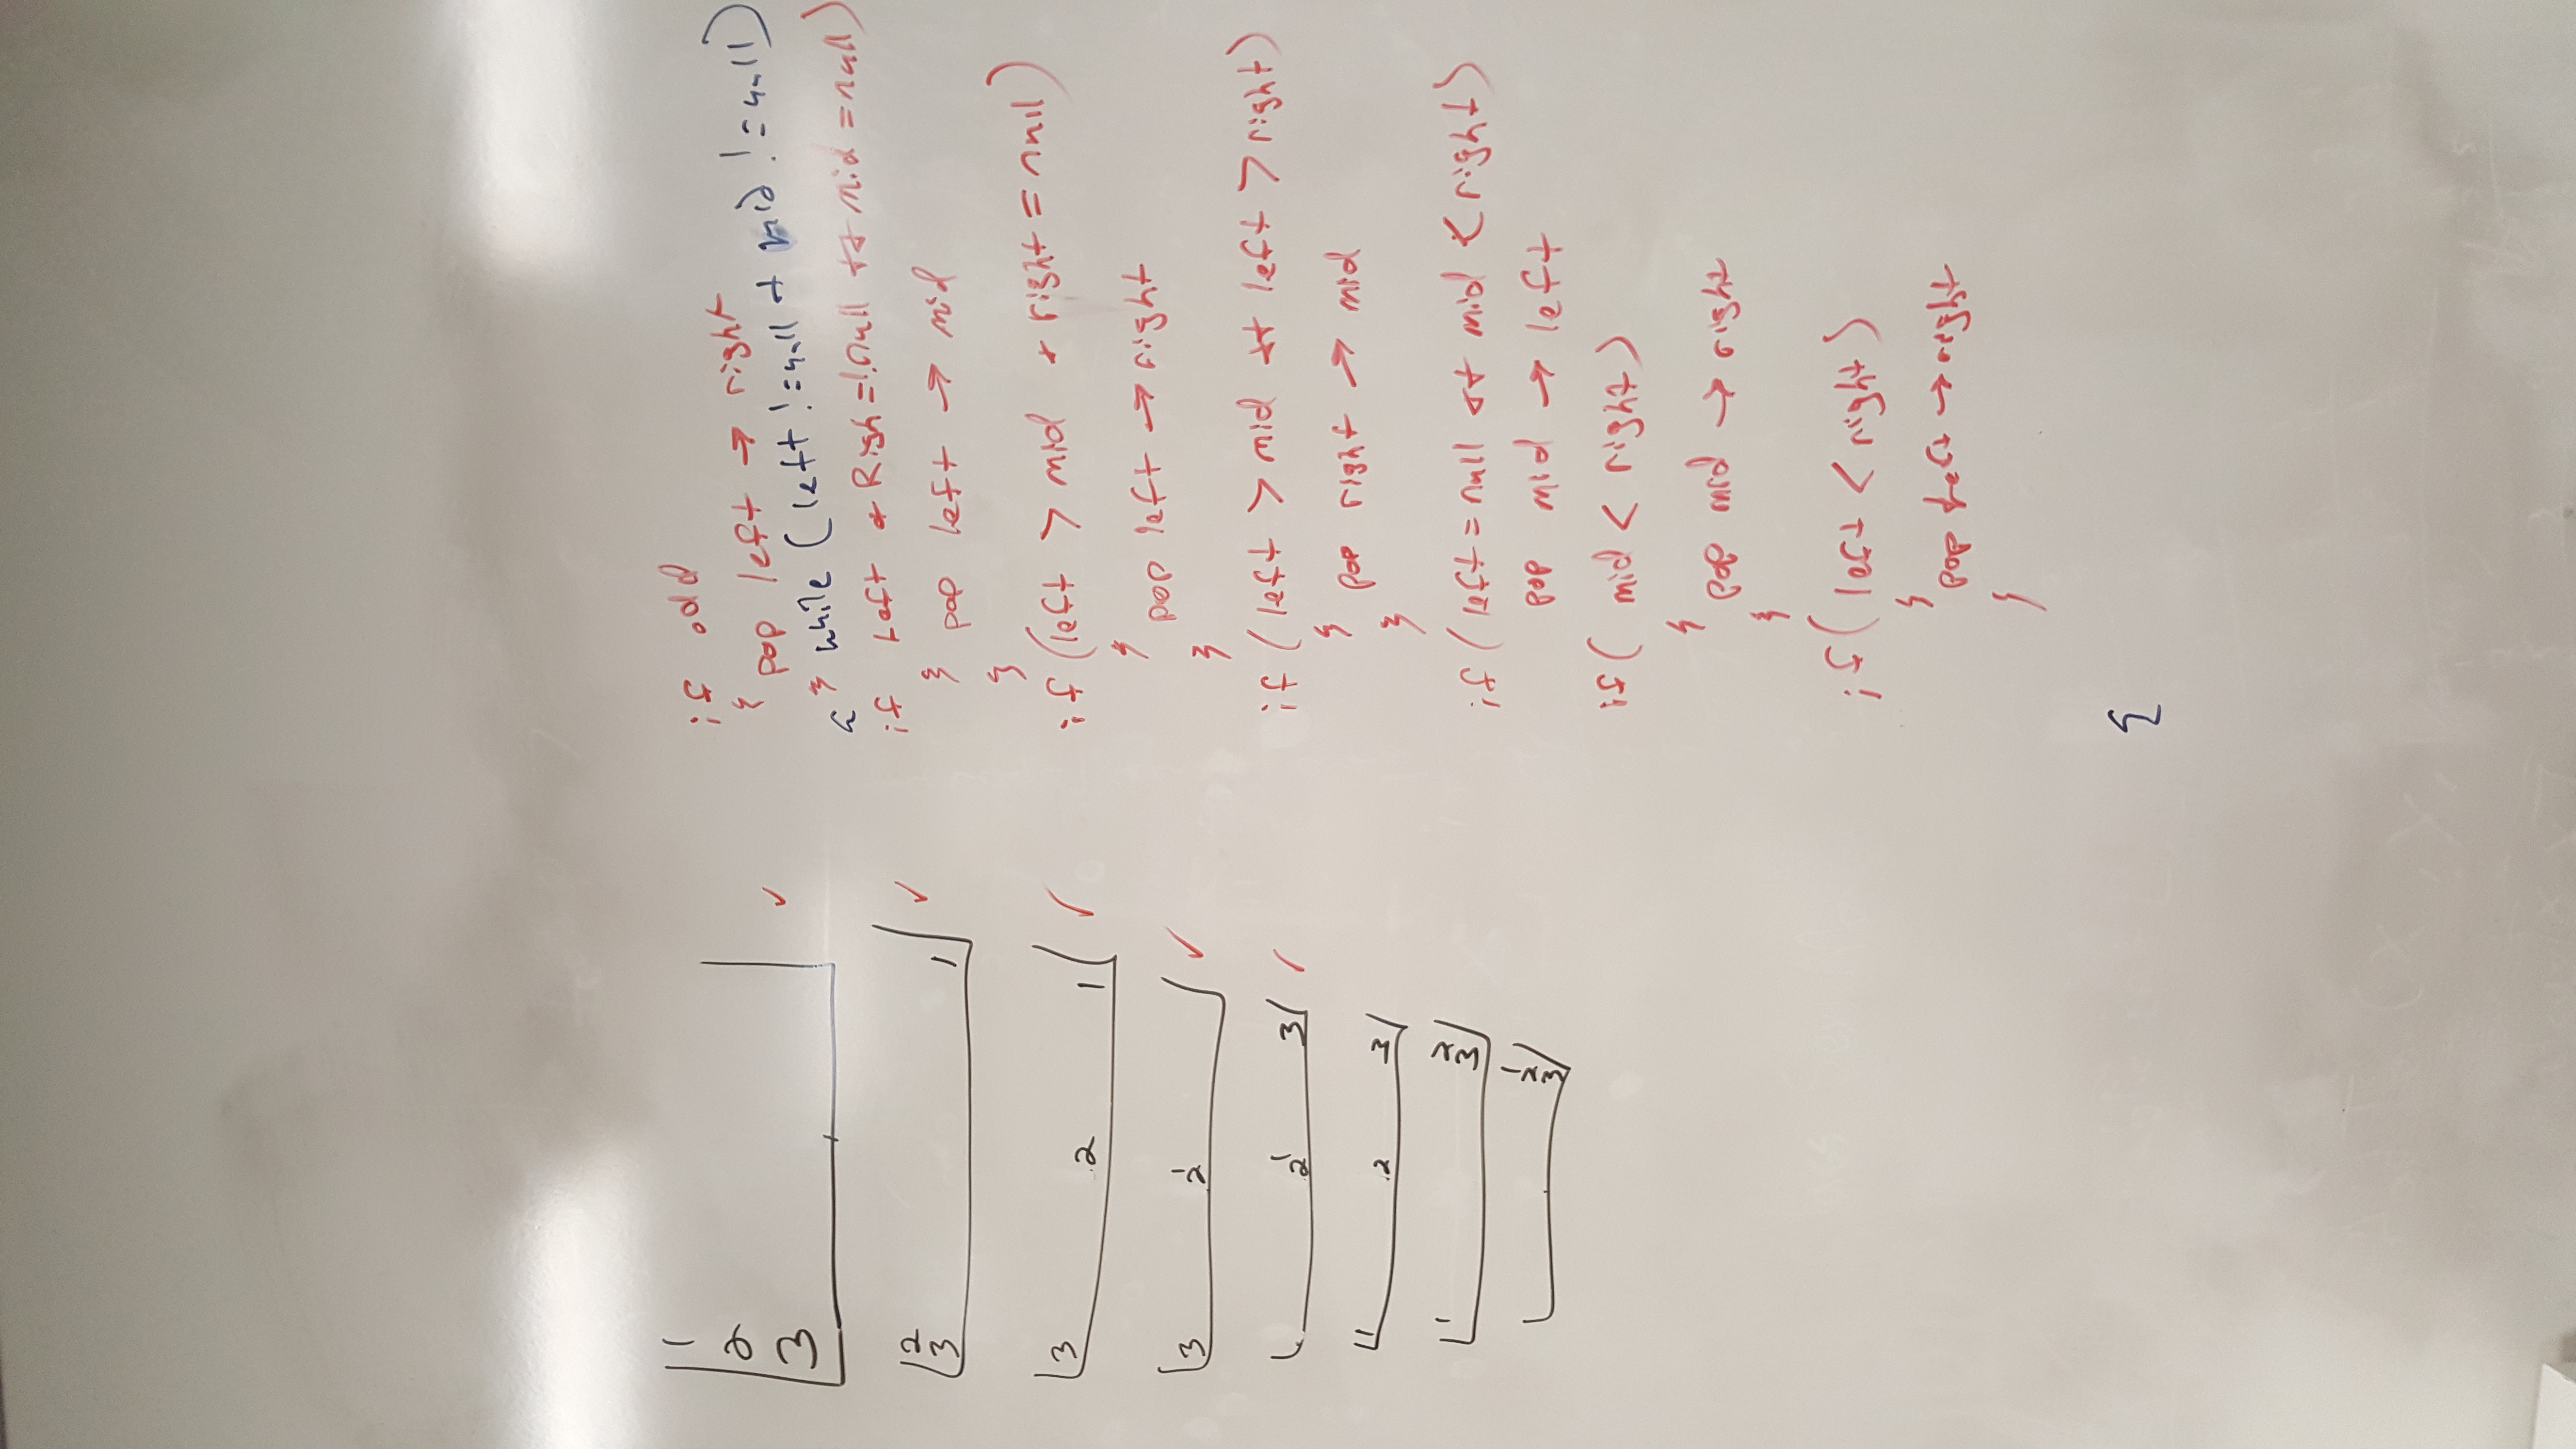 1
2
3
2
3 1
3 2 1
3 1
2
1
2 3
1 2 3
1 2
3
1
2
3
if odd
{ pop left → right
} while (left != null + mid != null)
{
if Left + Righ =! null ++ mid = null)
{ pop left → mid
}
if (left > mid + right = null)
{
pop left → right
}
if (left > mid ++ left > right)
{ pop right → mid
}
if (left = null ++ mid < right)
pop mid → left
if ( mid < right)
{
pop mid → right
}
if (left < right)
{
pop left → right
}
{